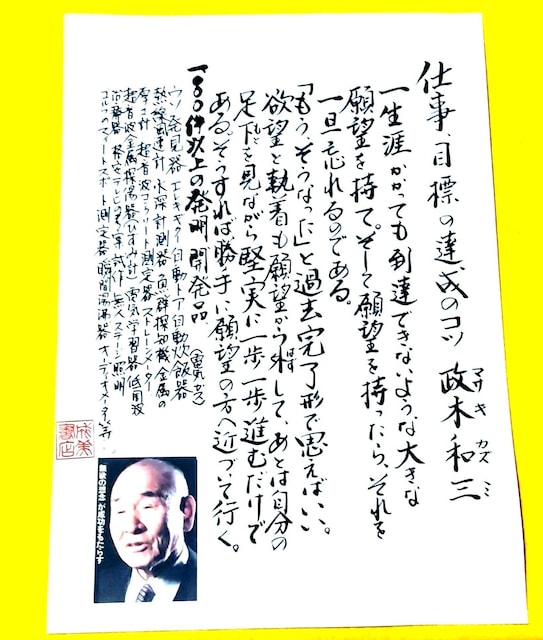 仕事、目標の達成のコツ 政木和三
マサキ カズミ
一生涯かかっても到達できないような大きな
願望を持て。そして願望を持ったら、それを
一旦忘れるのである。
「もう、そうなった」と過去完了形で思えばいい。
欲望と執着も願望から外して、あとは自分の
足下を見ながら堅実に一歩一歩進むだけで
ある。そうすれば勝手に願望の方へ近づいて行く。
一〇〇〇件以上の発明開発品
ウソ発見器 エレキギター 自動ドア 自動炊飯器(電気、ガス)
熱線風速計 水深計測器 魚群探知機 金属の
厚さ計 超音波コンクリート測定器 ストレンメーター
超音波金属探傷器 ひずみ計 電気学習器 低周波
治療器 格安テレビの実写試作 無人ステージ照明
ゴルフのスイートスポット測定器 瞬間湯沸器 オーディオメーター 等
成美書店
無欲の理念が成功をもたらす